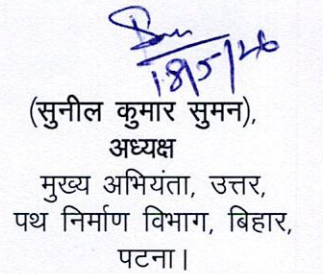 18/5/26
(सुनील कुमार सुमन),
अध्यक्ष
मुख्य अभियंता, उत्तर,
पथ निर्माण विभाग, बिहार,
पटना।